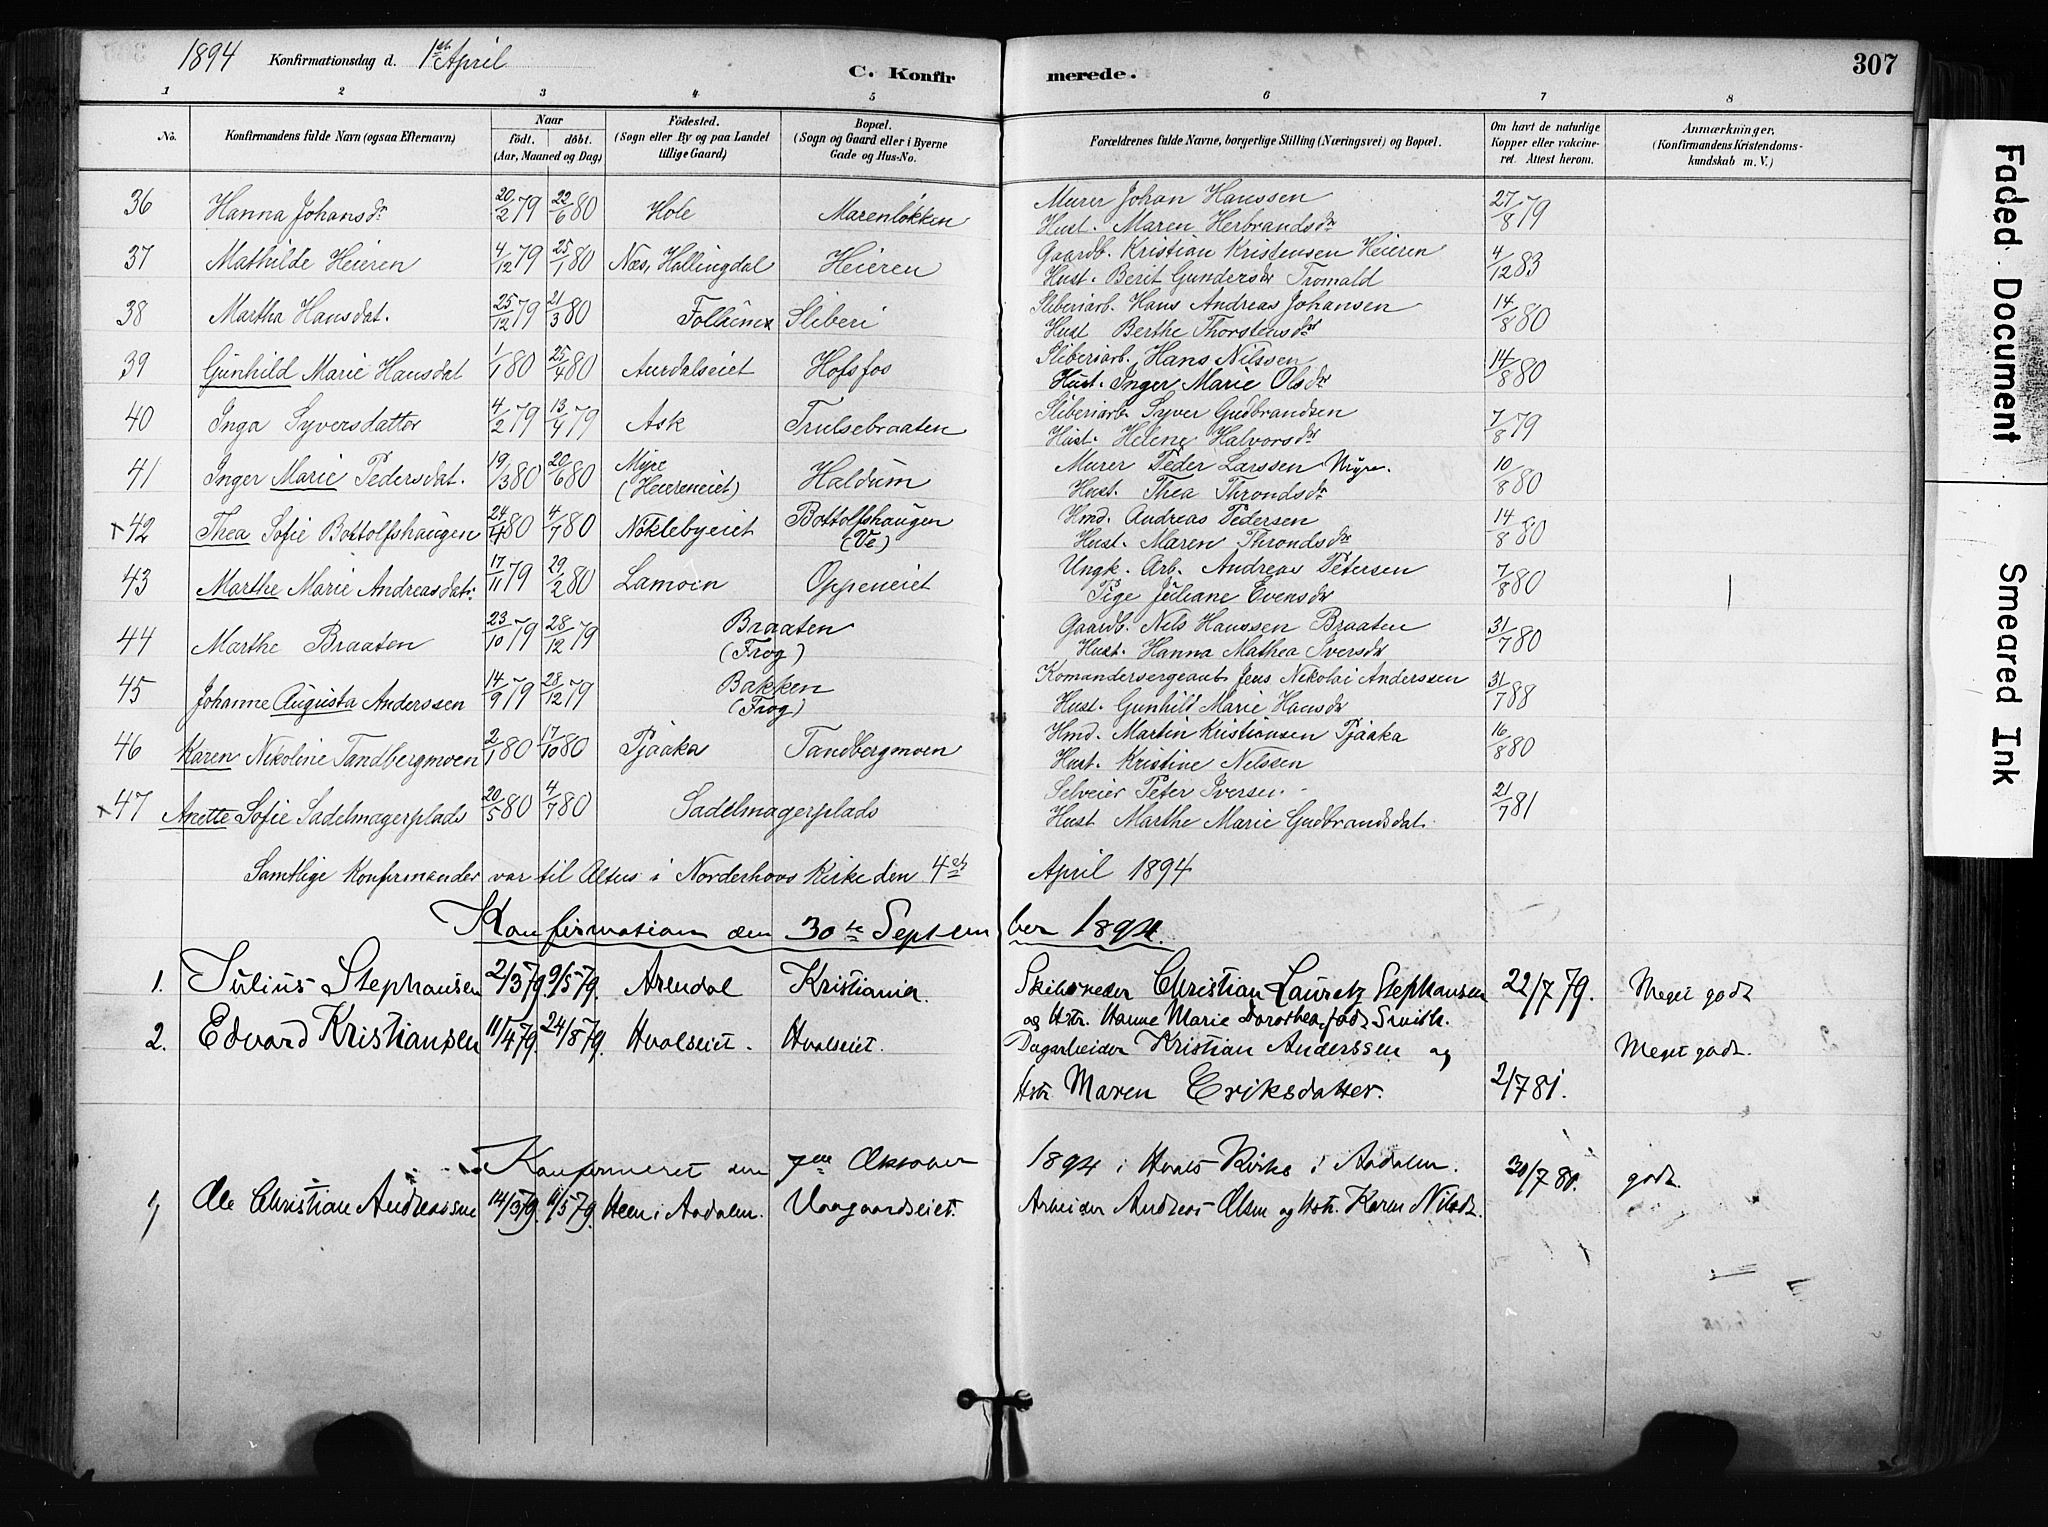 1894 Konfirmationsdag d. 1ste April
C. Konfirmerede.
307
1 2 3 4 5 6 7 8
No. Konfirmandens fulde Navn (ogsaa Efternavn) Naar født. døbt. (Aar, Maaned og Dag) Fødested. (Sogn eller By og paa Landet tillige Gaard) Bopæl. (Sogn og Gaard eller i Byerne Gade og Hus-No. Forældrenes fulde Navne, borgerlige Stilling (Næringsvei) og Bopæl. Om havt de naturlige Kopper eller vakcineret. Attest herom. Anmærkninger. (Konfirmandens Kristendomskundskab m. V.)
36 Hanna Johansdr 20/2 79 22/6 80 Hole Marenløkken Murer Johan Hanssen 27/8 79
Hust. Maren Herbrandsdr
37 Mathilde Heieren 4/12 79 25/1 80 Næs, Hallingdal Heieren Gaardb. Kristian Kristensen Heieren 4/12 83
Hust. Berit Gundersdr Tromald
38 Martha Hansdat. 25/12 79 21/3 80 Follum Sliberi Sliberiarb. Hans Andreas Johansen 14/8 80
Hust Berthe Thorstensdr
39 Gunhild Marie Hansdat 1/1 80 25/4 80 Aurdalseiet Hofsfos Sliberiarb. Hans Nilssen 14/8 80
Hust. Inger Marie Olsdr
40 Inga Syversdatter 4/2 79 13/4 79 Ask Trulsebraaten Sliberiarb. Syver Gudbrandsen 7/8 79
Hust. Helene Halvorsdr
41 Inger Marie Pedersdat. 19/3 80 20/6 80 Myre (Heiereneiet) Haldum Murer Peder Larssen Myre. 10/8 80
Hust. Thea Throndsdr
x 42 Thea Sofie Bottolfshaugen 24/4 80 4/7 80 Nøklebyeiet Bottolfshaugen (Ve) Hmd. Andreas Pedersen 14/8 80
Hust. Maren Throndsdr
43 Marthe Marie Andreasdatr. 17/11 79 29/2 80 Lamoen Oppeneiet Ungk. Arb. Andreas Petersen 7/8 80
Pige Juliane Evensdr
44 Marthe Braaten 23/10 79 28/12 79 Braaten (Frog) Gaardb. Nils Hanssen Braaten 31/7 80
Hust. Hanna Mathea Iversdr
45 Johanne Augusta Anderssen 14/9 79 28/12 79 Bakken (Frog) Komandersergeant Jens Nikolai Anderssen 31/7 88
Hust. Gunhild Marie Hansdr
46 Karen Nikoline Tandbergmoen 2/1 80 17/10 80 Pjaaka Tandbergmoen Hmd. Martin Kristiansen Pjaaka 16/8 80
Hust. Kristine Nilssen
x 47 Anette Sofie Sadelmagerplads 20/5 80 4/7 80 Sadelmagerplads Selveier Peter Iversen 21/7 81
Hust Marthe Marie Gudbrandsdat.
Samtlige Konfirmander var til Alters i Norderhovs Kirke den 4de April 1894
Konfirmation den 30te September 1894.
1. Julius Stephansen 2/3 79. 9/5 79. Arendal Kristiania. Skibsreder Christian Lauretz Stephansen 22/7 79. Meget godt
og Hstr. Hanne Marie Dorothea, født Smith.
2. Edvard Kristiansen 11/4 79. 24/8 79. Hvalseiet. Hvalseiet. Dagarbeider Kristian Anderssen og Meget godt.
Hstr Maren Eriksdatter. 2/7 81.
Konfirmeret den 7de Oktober 1894 i Hvals Kirke i Aadalen. 30/7 80. godt.
1) Ole Christian Andreassen 14/3 79. 11/5 79. Heen i Aadalen. Vaagaardseiet. Arbeider Andreas Olsen og Hstr. Karen Nilsdt.
Faded Document
Smeared Ink